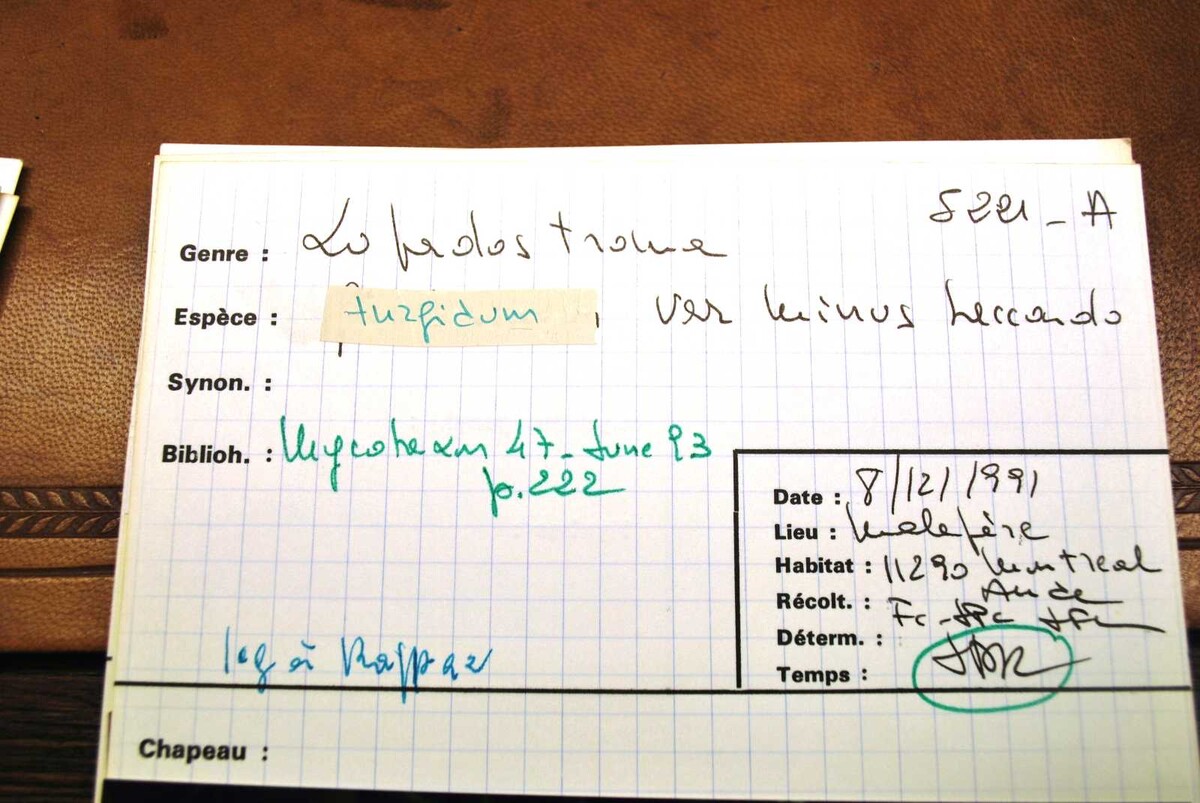 5221-A
Genre : Lopadostroma
Espèce : turgidum, var minus
Synon. :
Biblioh. : Mycotaxon 47-June 93
p.222
Date : 8/12/1991
Lieu : Malepère
Habitat : 11290 Montreal
Aude
Récolt. : Fc-
Déterm. :
Temps :
leg à Rappaz
Chapeau :